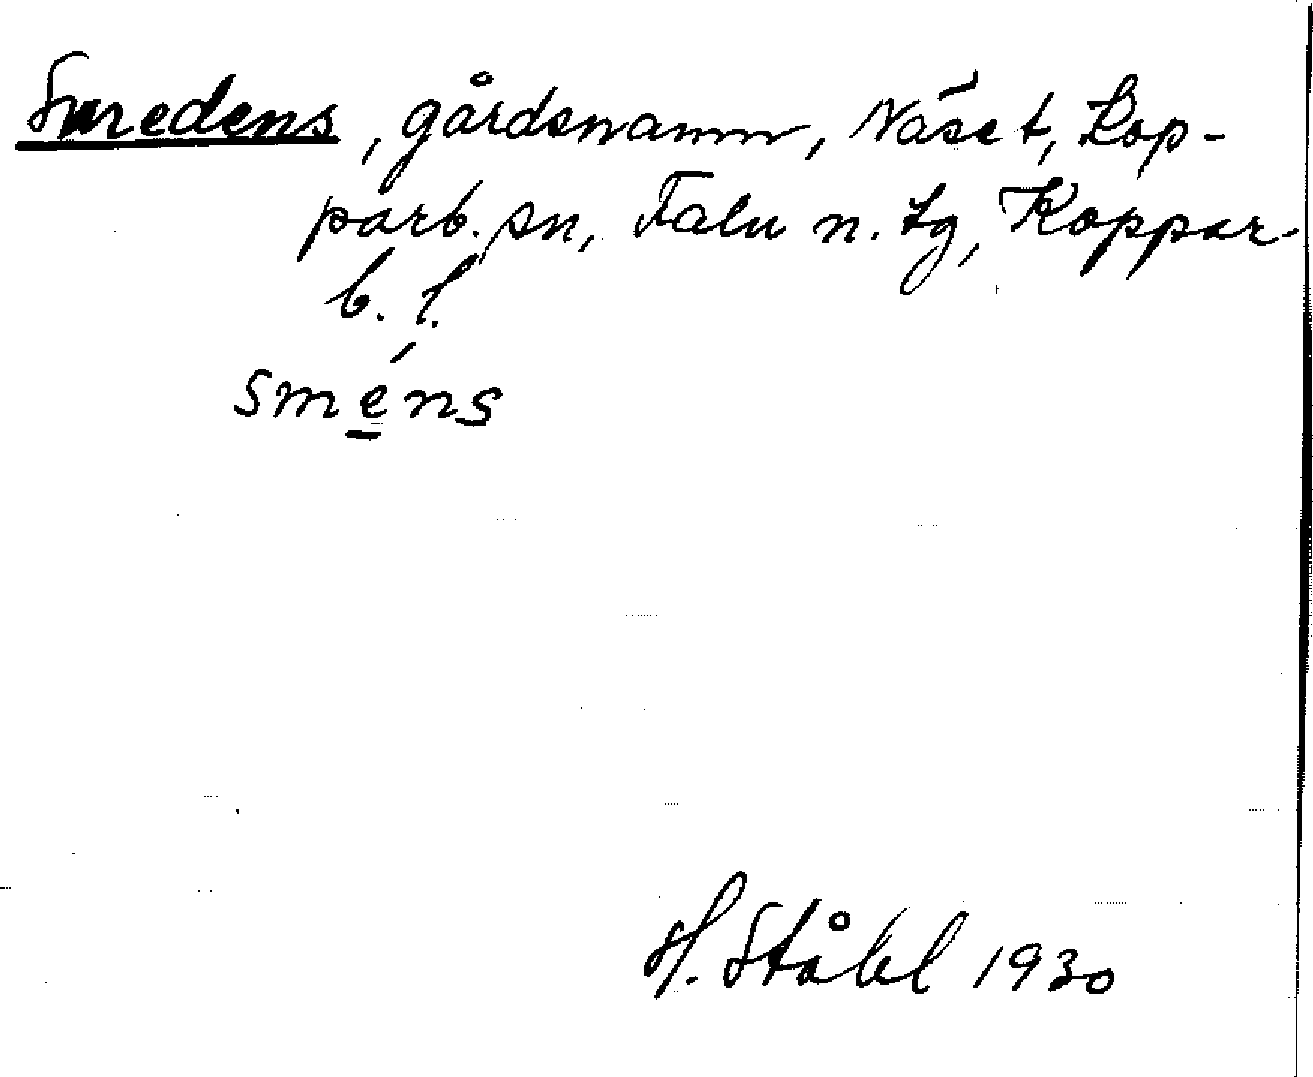 Smedens, gårdsnamn, Näset, Kop-
parb. sn, Falu n. tg, Koppar-
b. l.
sméns
H. Ståhl 1930